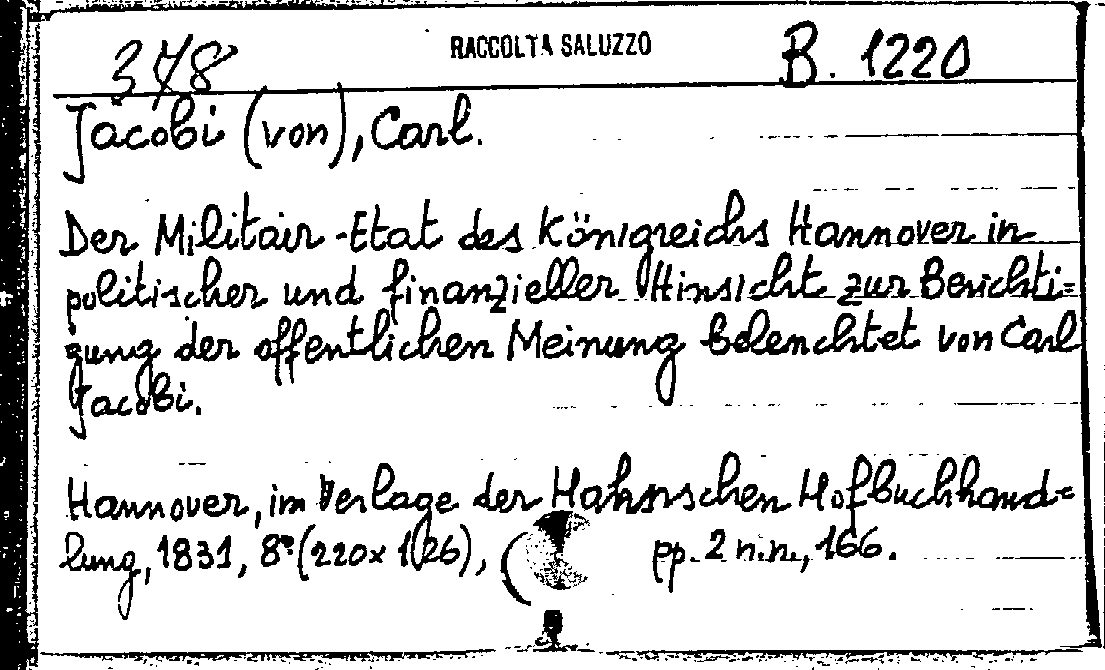 378 RACCOLTA SALUZZO B. 1220
Jacobi (von), Carl.
Der Militair-Etat des Königreichs Hannover in
politischer und finanzieller Hinsicht zur Berichti=
gung der offentlichen Meinung beleuchtet von Carl
Jacobi.
Hannover, im Verlage der Hahnschen Hofbuchhand=
lung, 1831, 8° (220x126), pp. 2 n.n., 166.